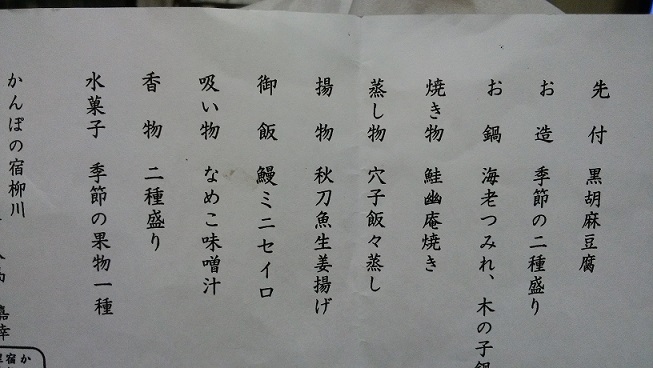 先付 黒胡麻豆腐
お造 季節の二種盛り
お鍋 海老つみれ、木の子鍋
焼き物 鮭幽庵焼き
蒸し物 穴子飯々蒸し
揚物 秋刀魚生姜揚げ
御飯 鰻ミニセイロ
吸い物 なめこ味噌汁
香物 二種盛り
水菓子 季節の果物一種
かんぽの宿柳川
嘉幸
宿か